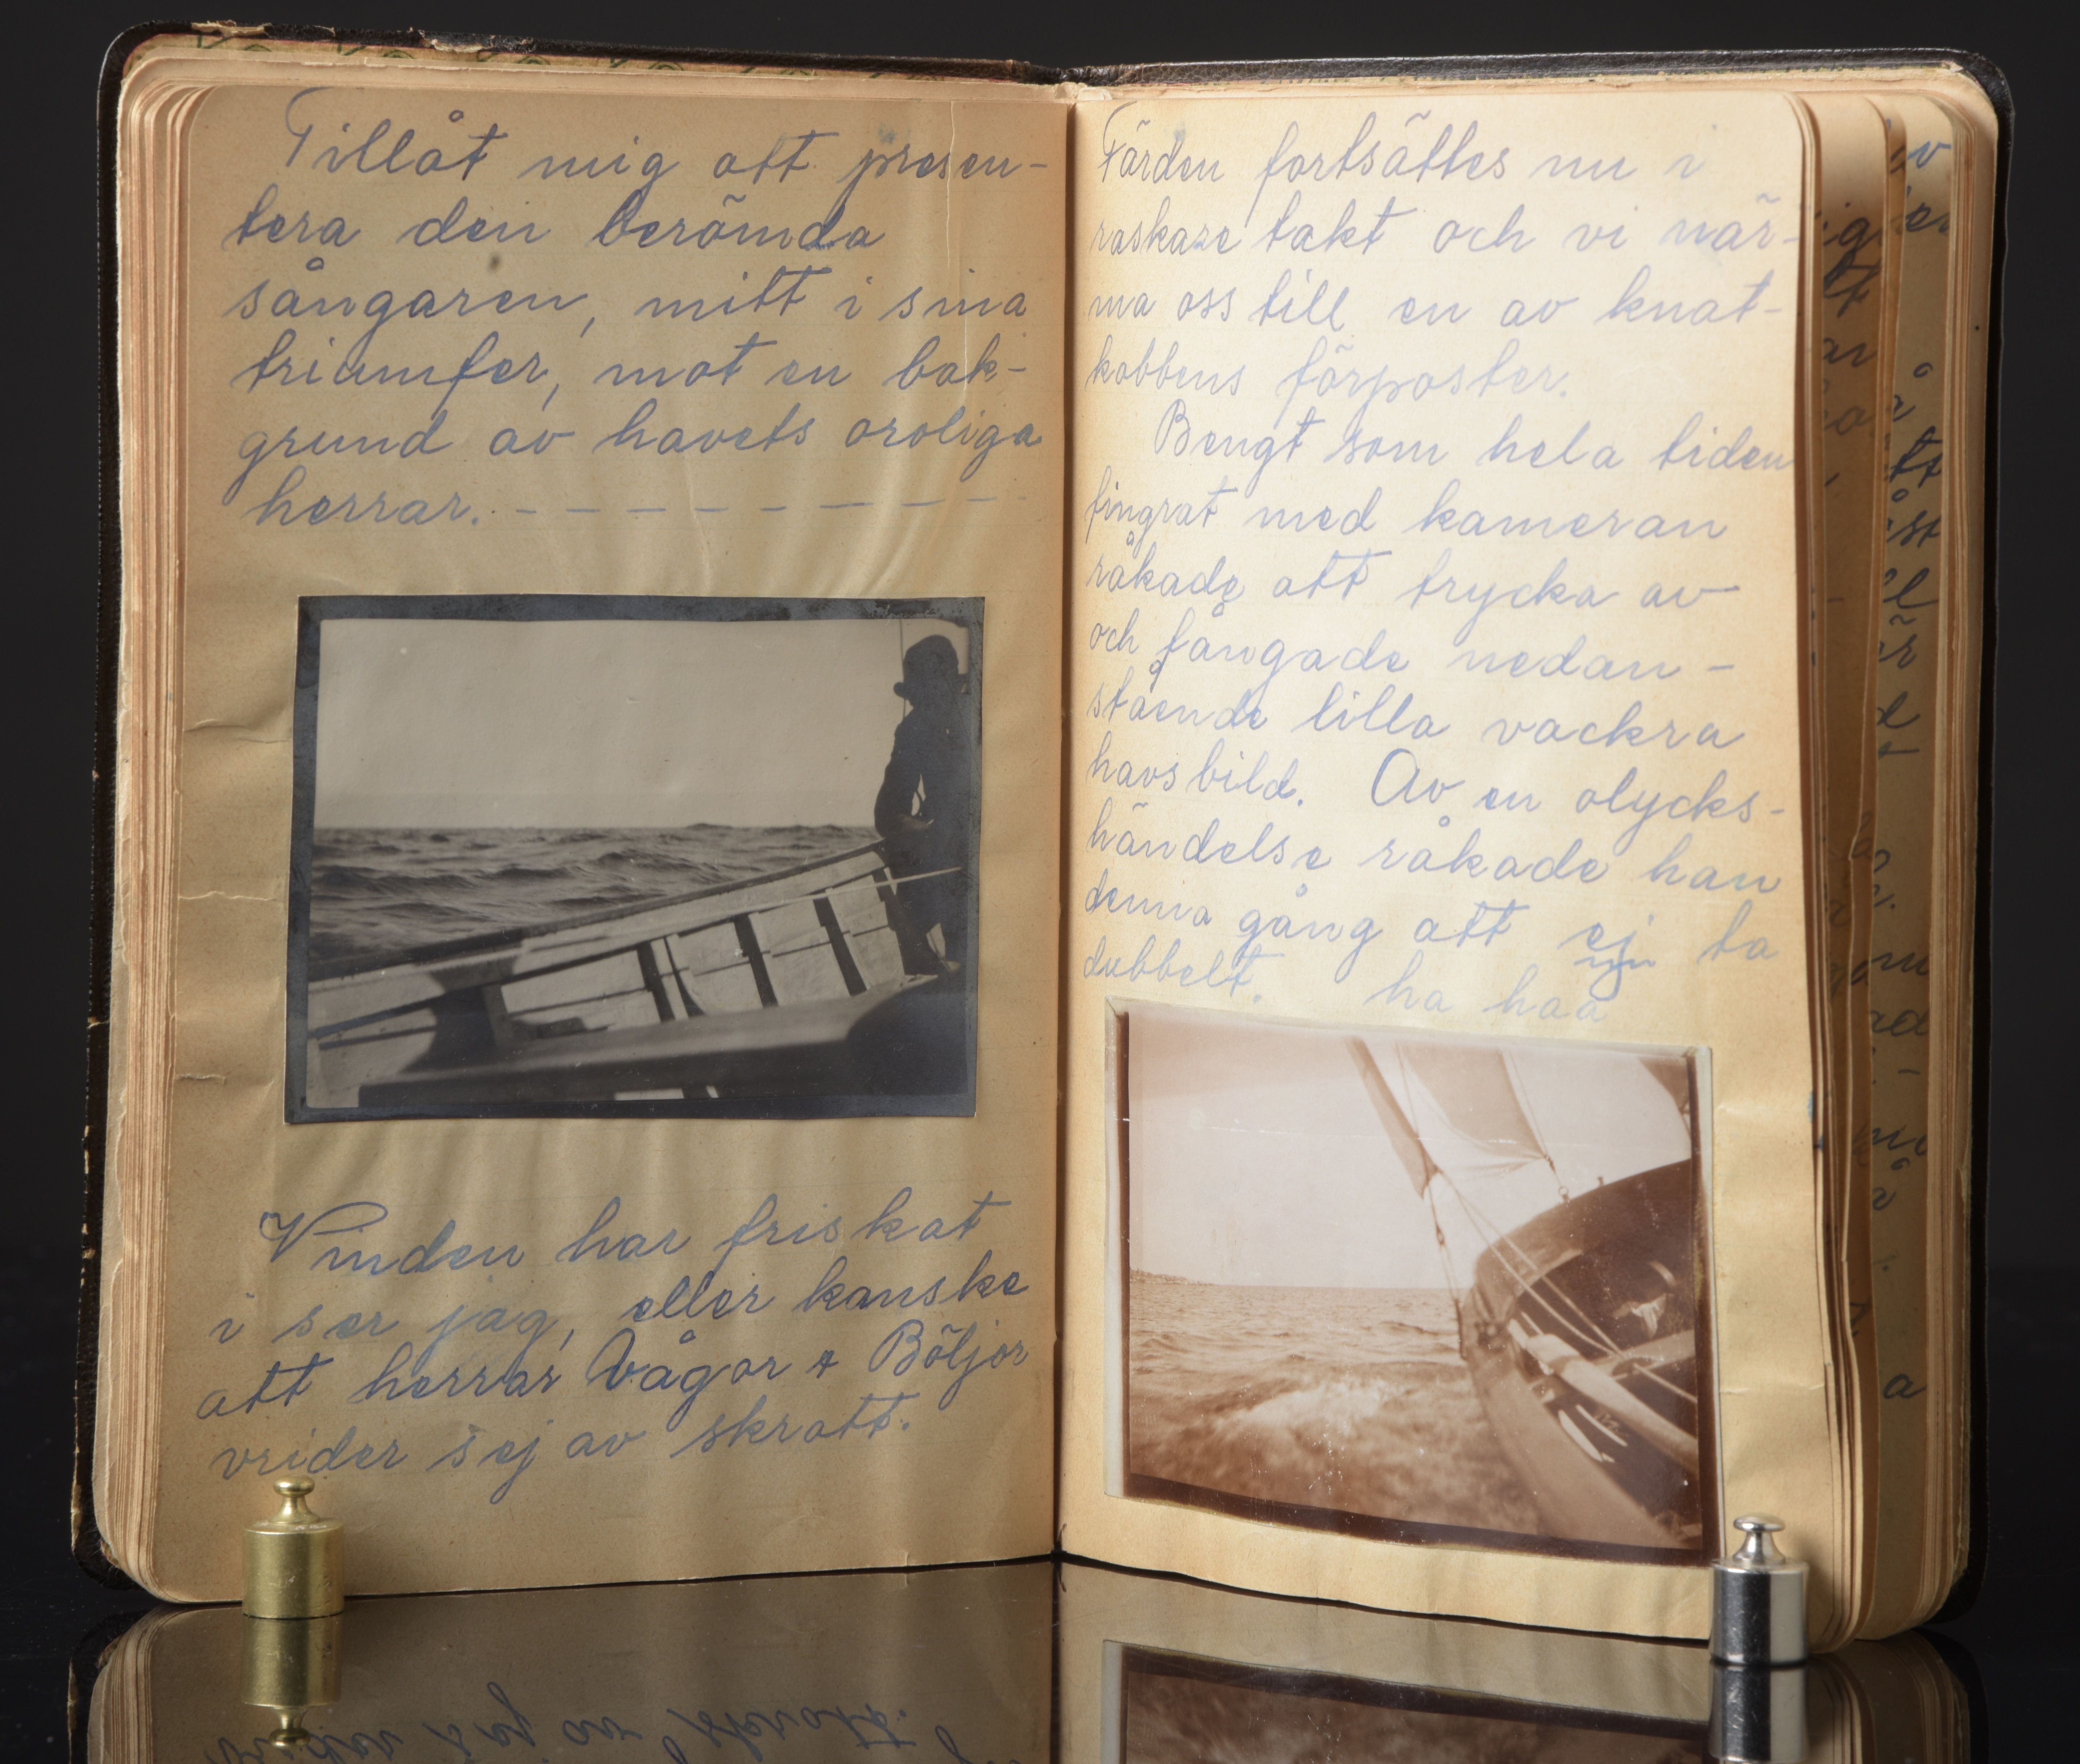 Tillåt mig att presen-
tera den berömda
sångaren, mitt i sina
triumfer, mot en bak-
grund av havets oroliga
herrar. - - - - - - - -
Vinden har friskat
i ser jag, eller kanske
att herrar Vågor + Böljor
vrider sej av skratt.
Färden fortsättes nu i
raskare takt och vi när-
ma oss till en av knat-
kobbens förposter.
Bengt som hela tiden
fingrat med kameran
råkade att trycka av
och fångade nedan-
stående lilla vackra
havsbild. Av en olycks-
händelse råkade han
denna gång att ej ta
dubbelt. ha haa